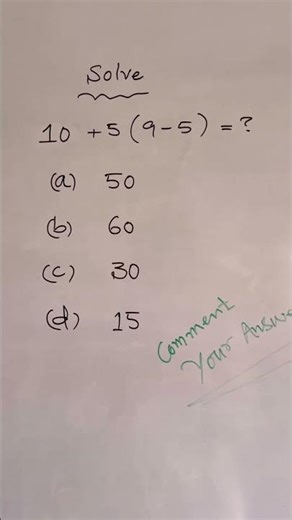 Solve
10 + 5 (9 - 5) = ?
(a) 50
(b) 60
(c) 30
(d) 15
Comment
Your